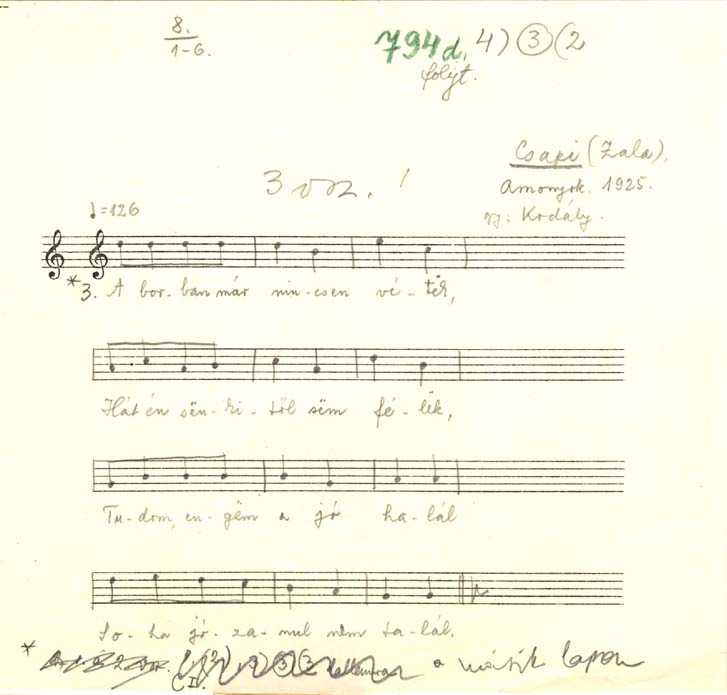 8.
1-6.
794d. 4) ③ (2
folyt.
Csapi (Zala).
3 vsz. !
Amonyok. 1925.
gy: Kodály.
♩=126
*3. A bor-ban már nin-csen vé-tek,
Hát én sën-ki-től sëm fé-lek,
Tu-dom, en-gëm a jó ha-lál
So-ha jó-za-nul nëm ta-lál.
* a másik lapon